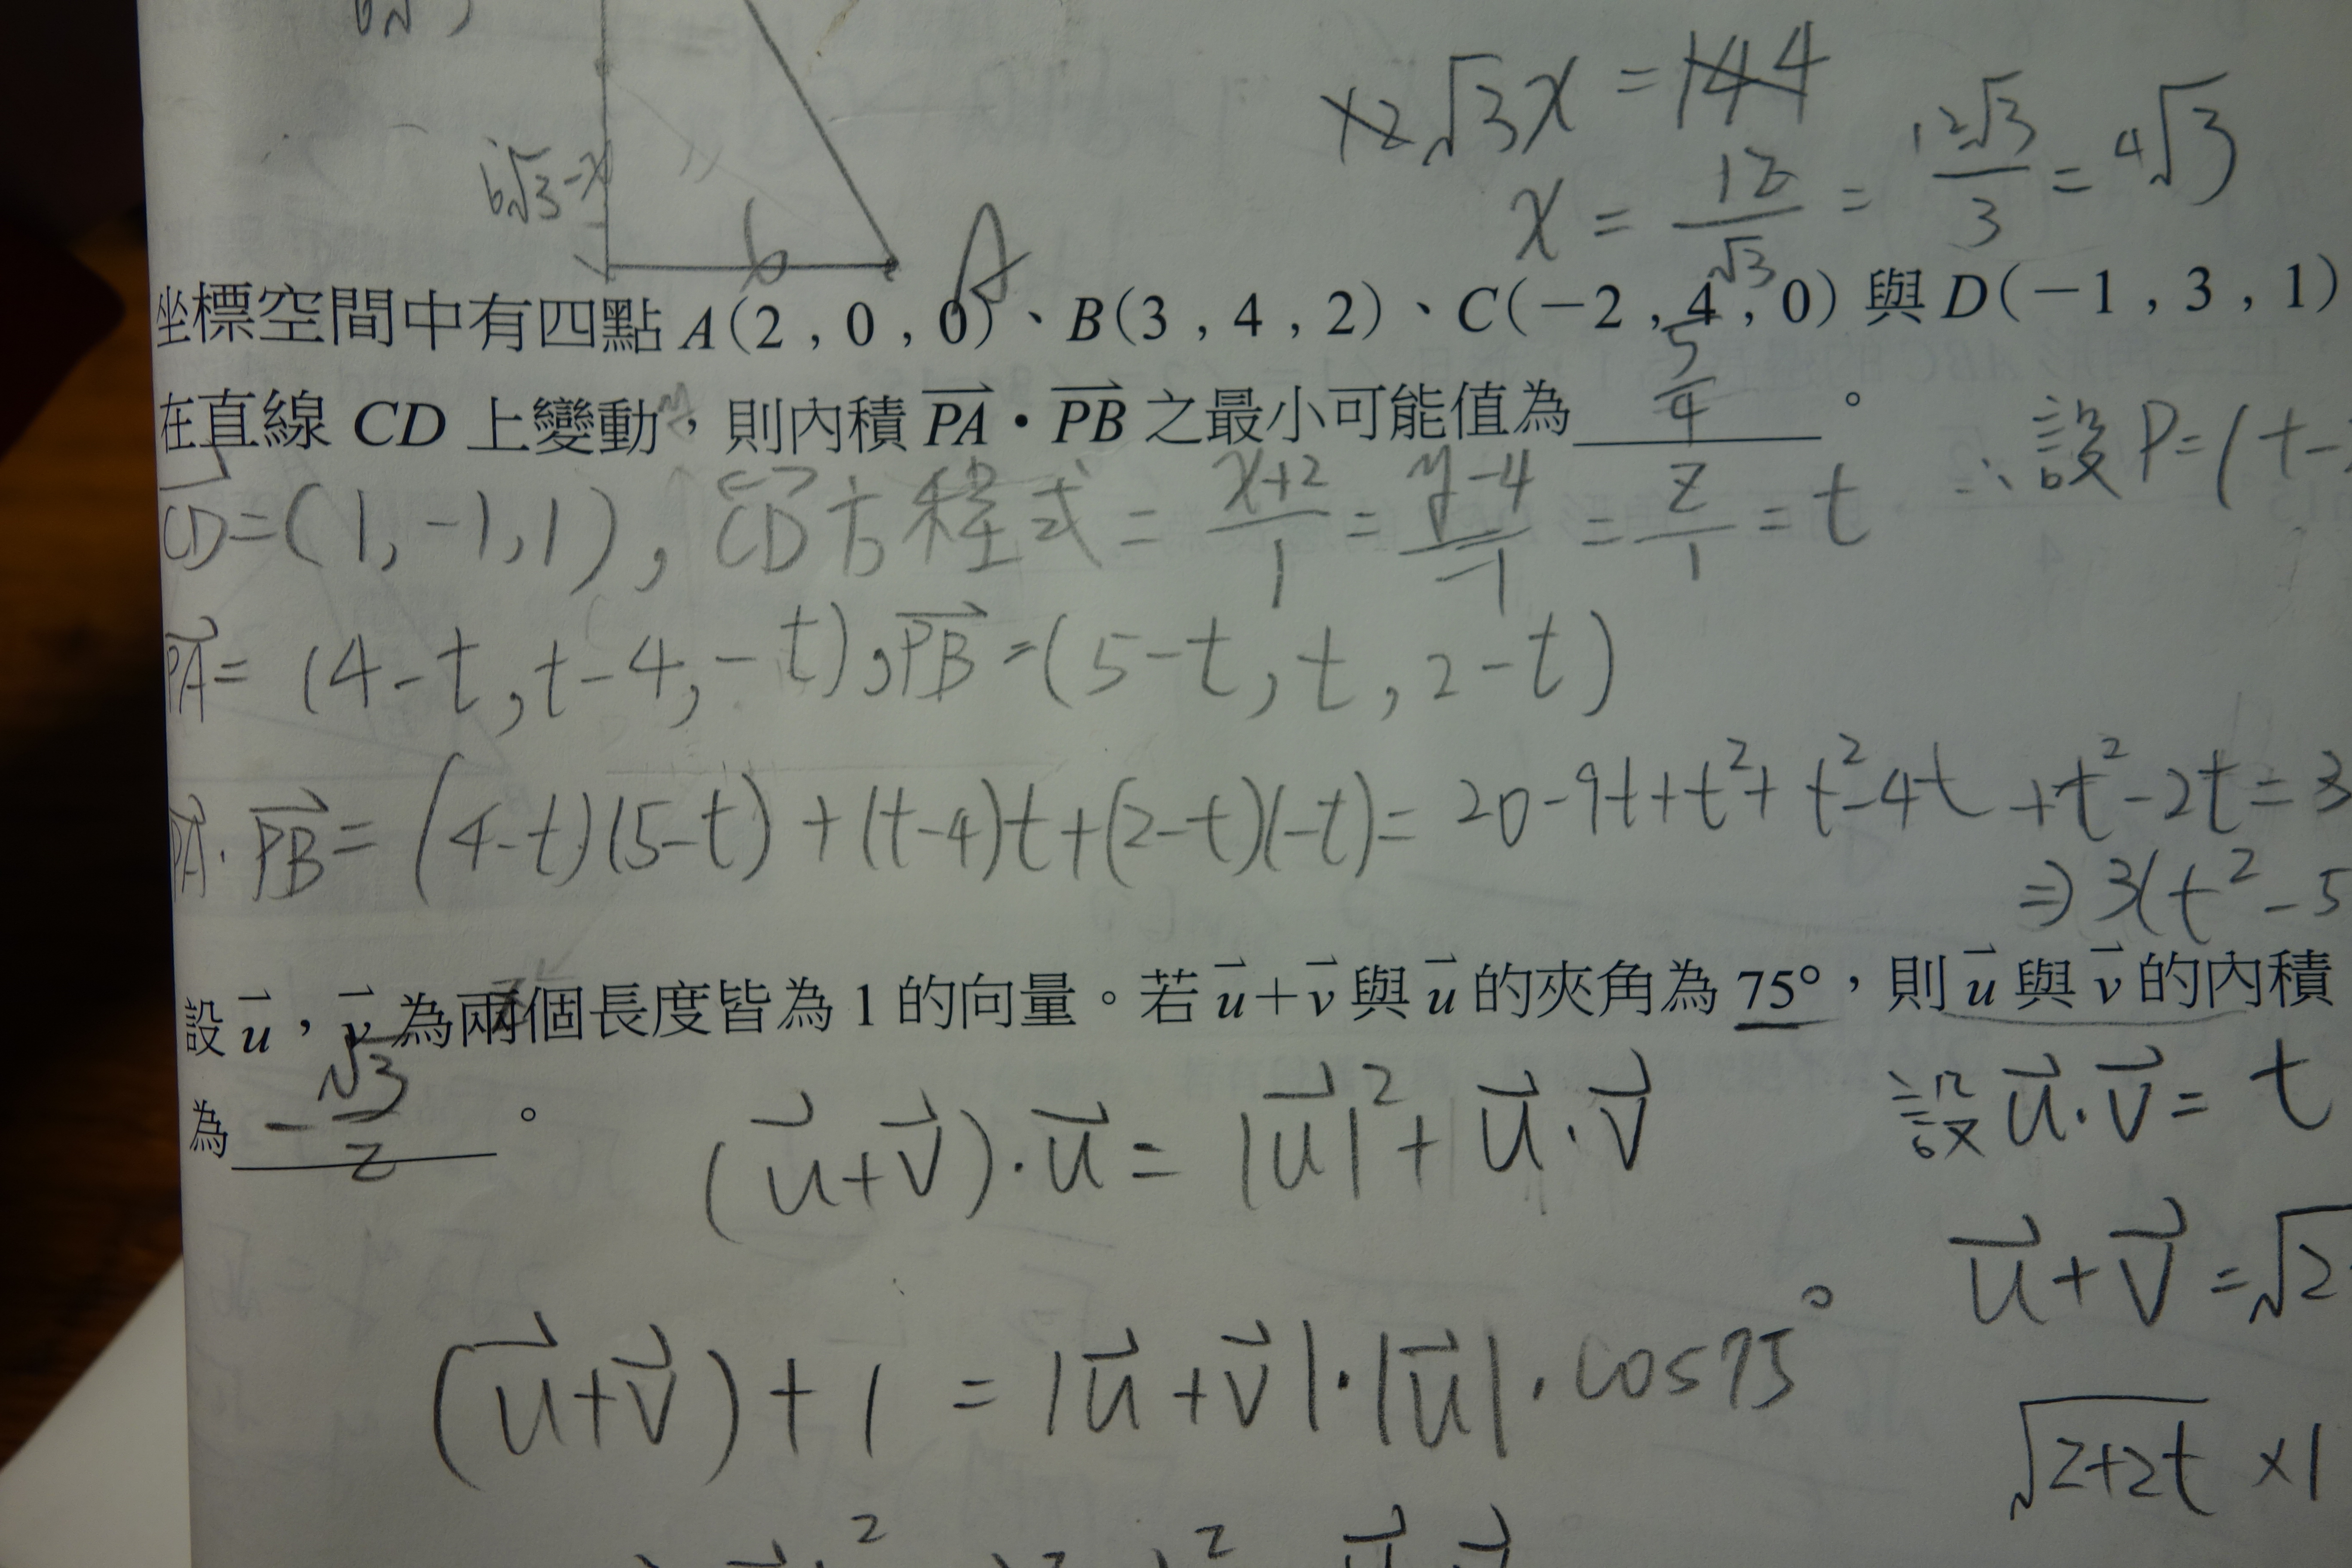 12√3x = 144
x = 12/√3 = 12√3/3 = 4√3
6√3-x
6
A
坐標空間中有四點 A(2 , 0 , 0)、B(3 , 4 , 2)、C(−2 , 4 , 0) 與 D(−1 , 3 , 1)
在直線 CD 上變動,則內積 PA⃗ · PB⃗ 之最小可能值為 5/4 。
∴設 P=(t-
CD⃗=(1,-1,1), CD方程式 = x+2/1 = y-4/-1 = z/1 = t
PA⃗= (4-t,t-4,-t),PB⃗=(5-t,t,2-t)
PA⃗·PB⃗=(4-t)(5-t)+(t-4)t+(2-t)(-t)= 20-9t+t²+t²-4t+t²-2t=3
⇒3(t²-5
設 u⃗,v⃗ 為兩個長度皆為 1 的向量。若 u⃗+v⃗ 與 u⃗ 的夾角為 75°,則 u⃗ 與 v⃗ 的內積
為 -√3/2 。
(u⃗+v⃗)·u⃗= |u⃗|²+u⃗·v⃗
設 u⃗·v⃗= t
u⃗+v⃗=√2
(u⃗+v⃗)+1 = |u⃗+v⃗|·|u⃗|·cos75°
√2+2t ×1